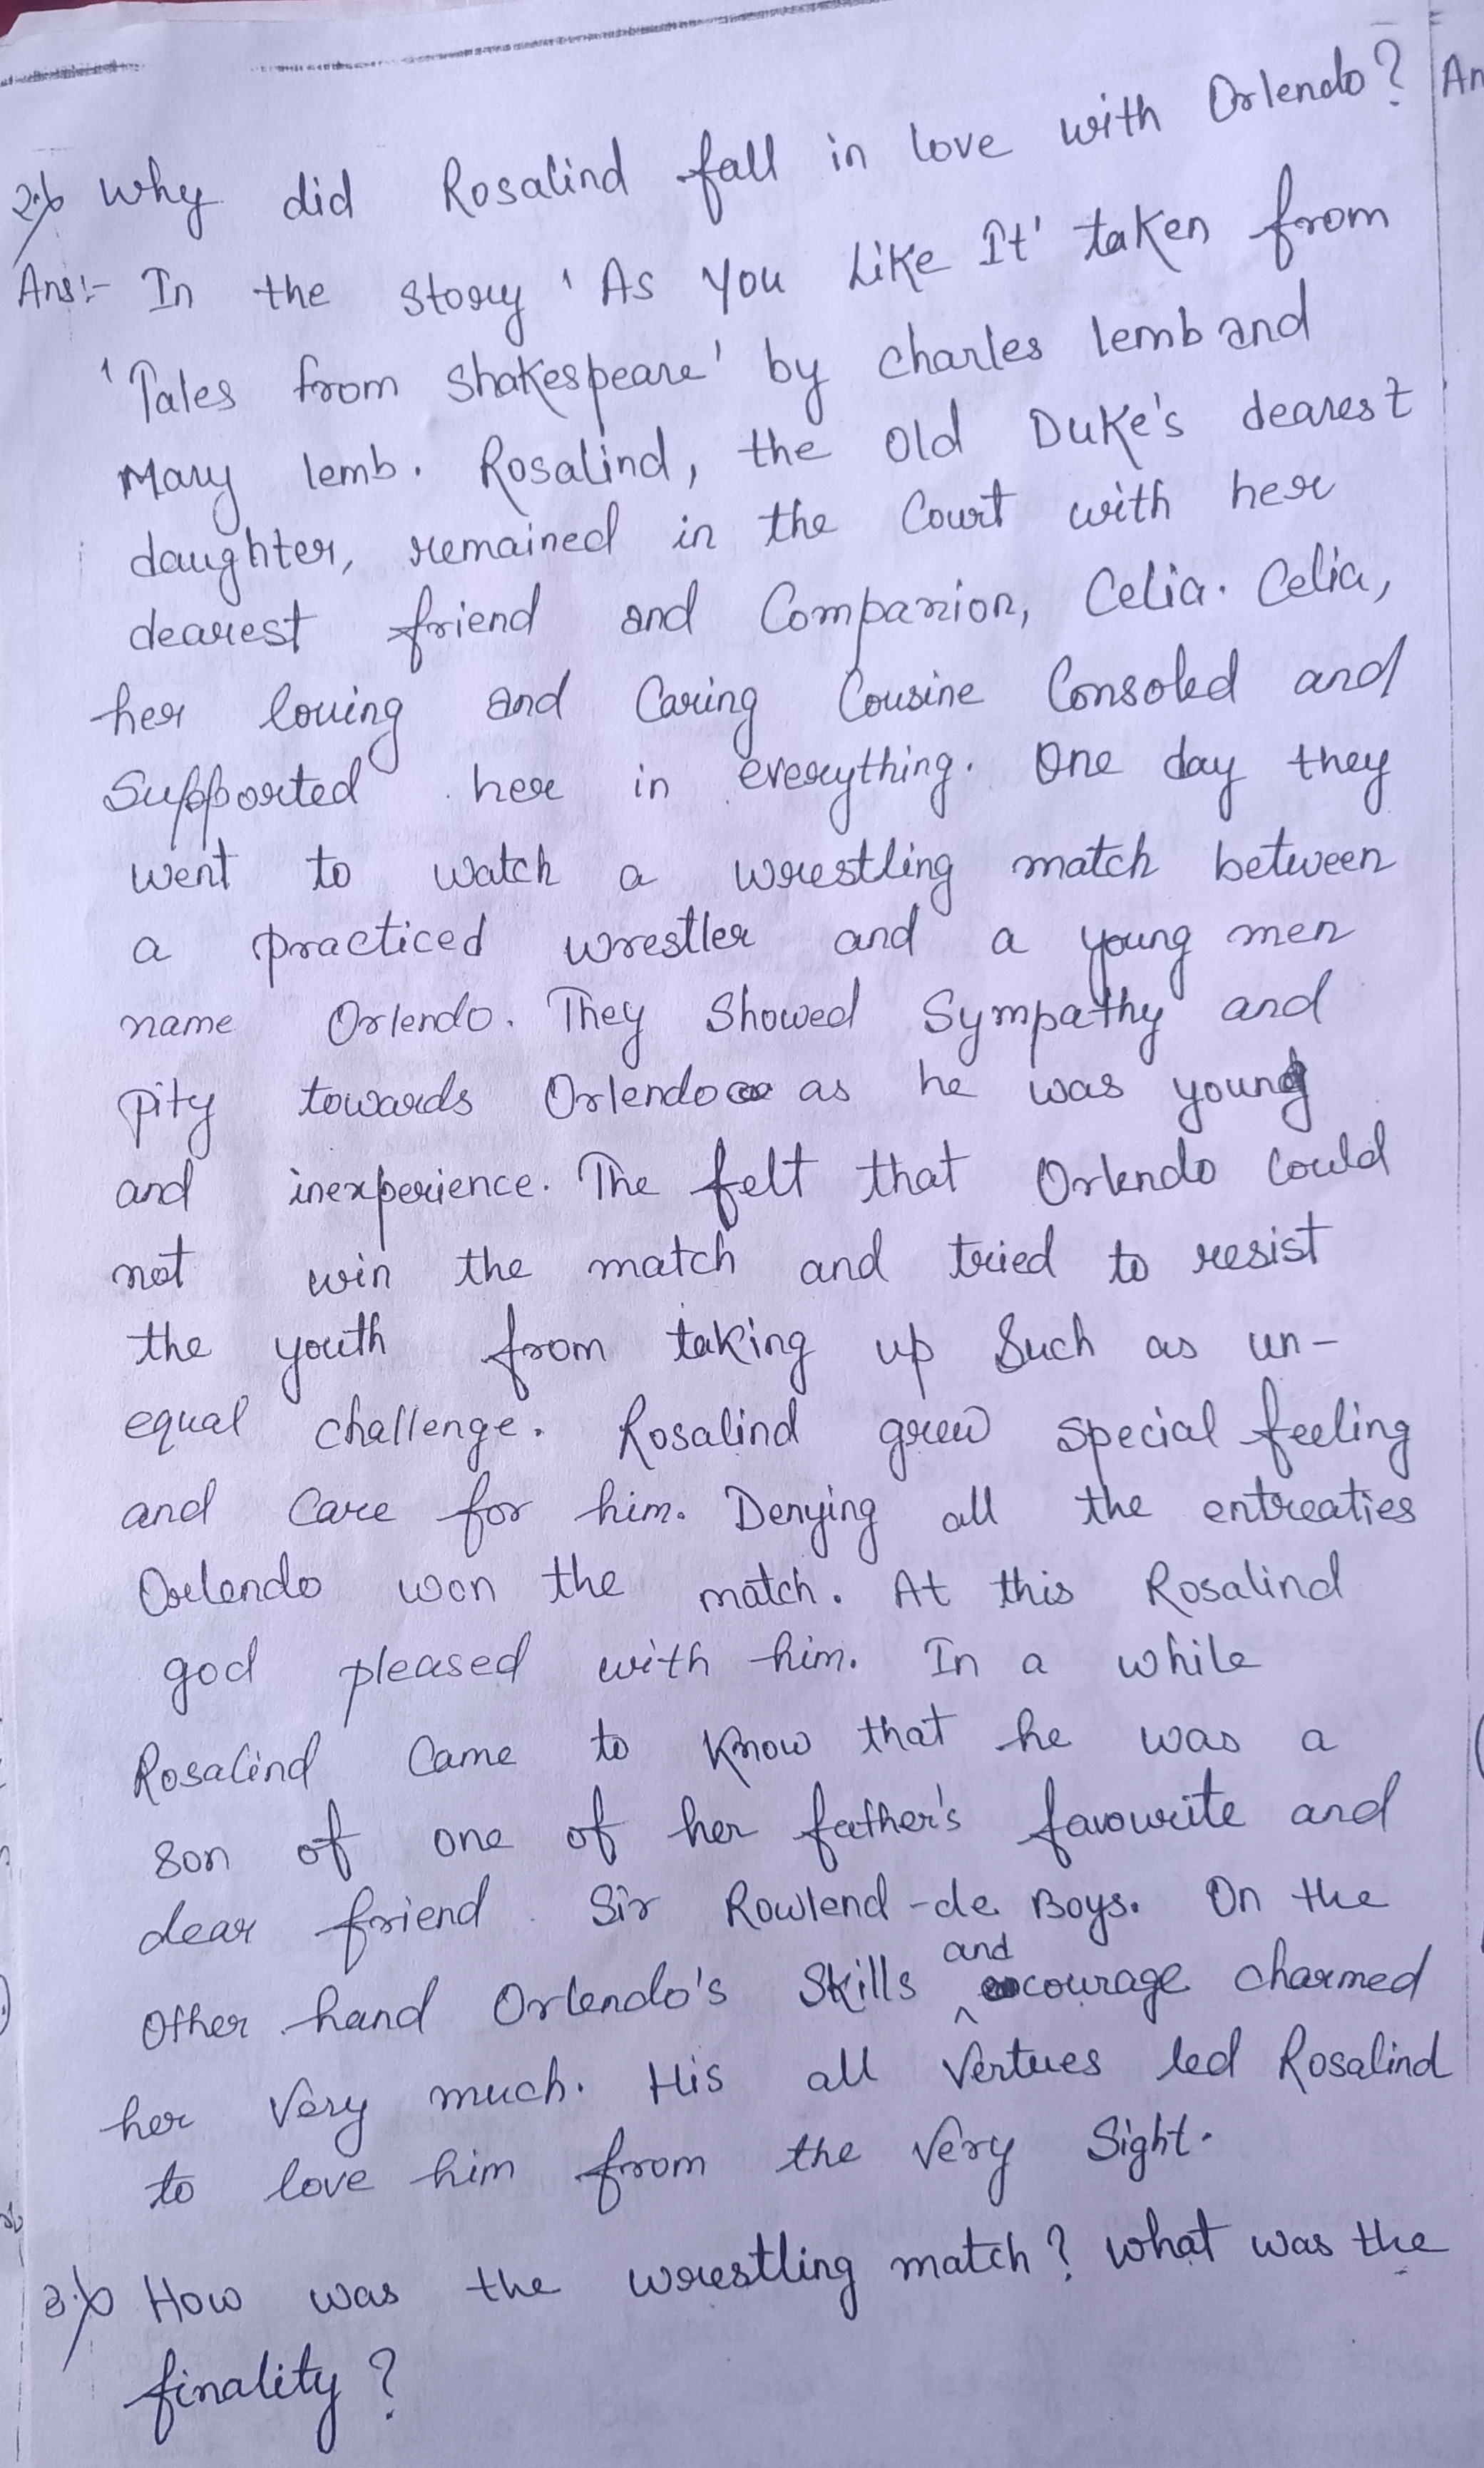 2.%) Why did Rosalind fall in love with Orlendo?
An
Ans:- In the story 'As You Like It' taken from
'Tales from Shakespeare' by Charles lemb and
Mary lemb. Rosalind, the Old Duke's dearest
daughter, remained in the Court with her
dearest friend and Companion, Celia. Celia,
her loving and Caring Cousine Consoled and
Supported her in everything. One day they
went to watch a wrestling match between
a practiced wrestler and a young men
name Orlendo. They Showed Sympathy and
pity towards Orlendo as he was young
and inexperience. The felt that Orlendo Could
not win the match and tried to resist
the youth from taking up Such as un-
equal challenge. Rosalind grew special feeling
and Care for him. Denying all the entreaties
Orlendo won the match. At this Rosalind
god pleased with him. In a while
Rosalind Came to Know that he was a
son of one of her father's favourite and
dear friend Sir Rowlend-de Boys. On the
Other hand Orlendo's Skills and courage charmed
her Very much. His all Vertues led Rosalind
to love him from the Very Sight.
3.%) How was the wrestling match? What was the
finality?